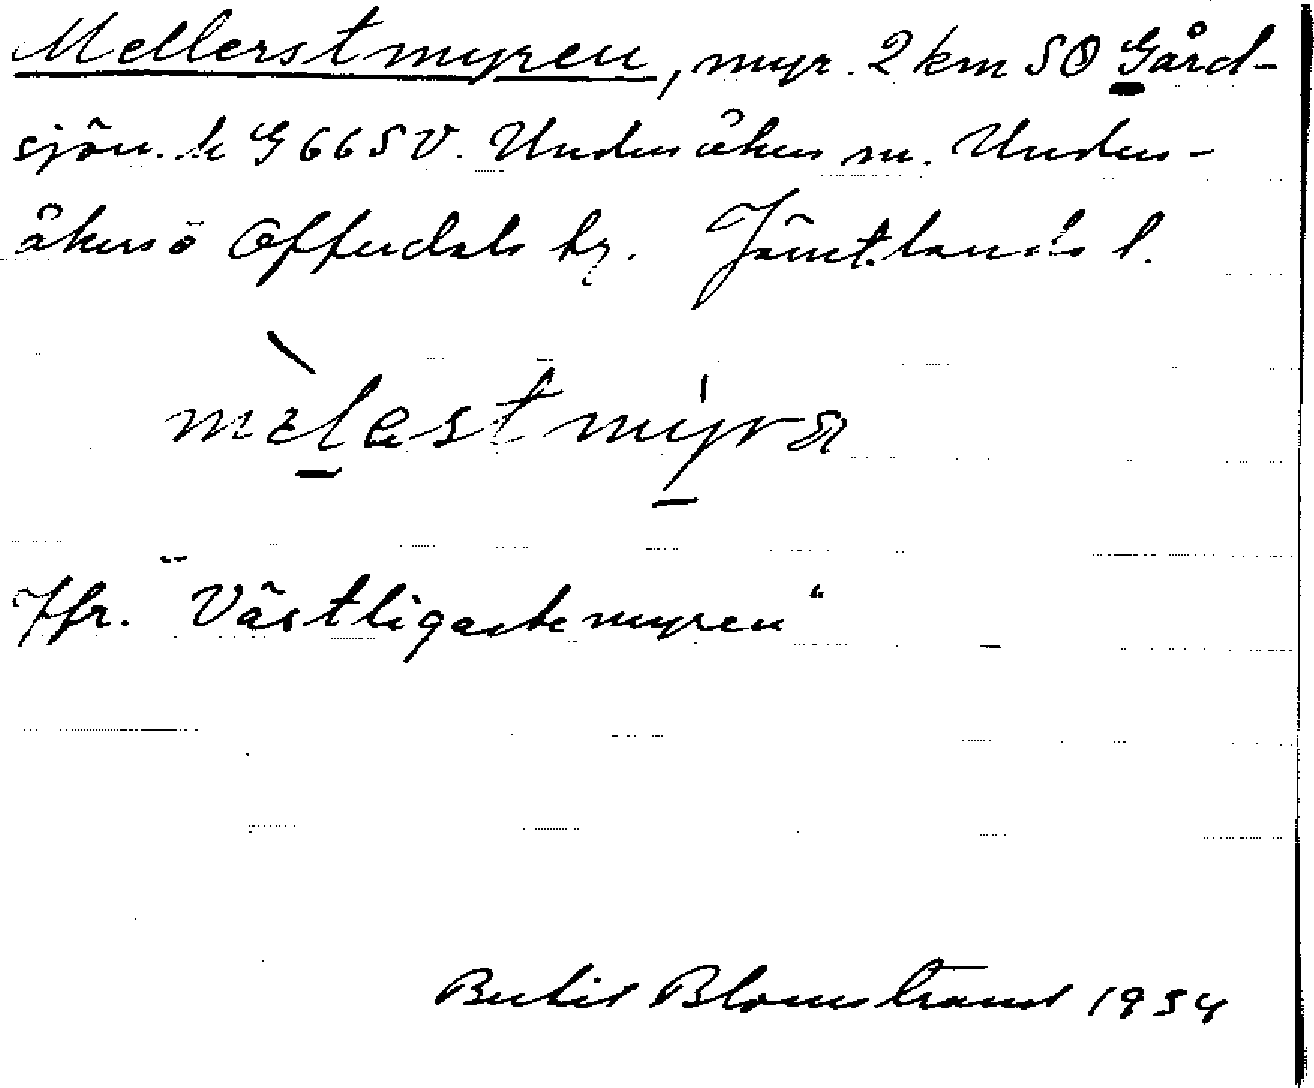 Mellerstmyren, myr. 2 km SO Gård-
sjön. k G 66 SV. Undersåkers sn. Unders-
åkers o Offerdals hg. Jämtlands l.
mèlestmyra
Jfr. "Västligastemyren"
Bertil Blomstrand 1934